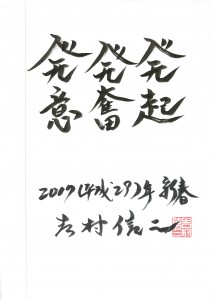 発起
発奮
発意
2017(平成29)年 新春
吉村信二